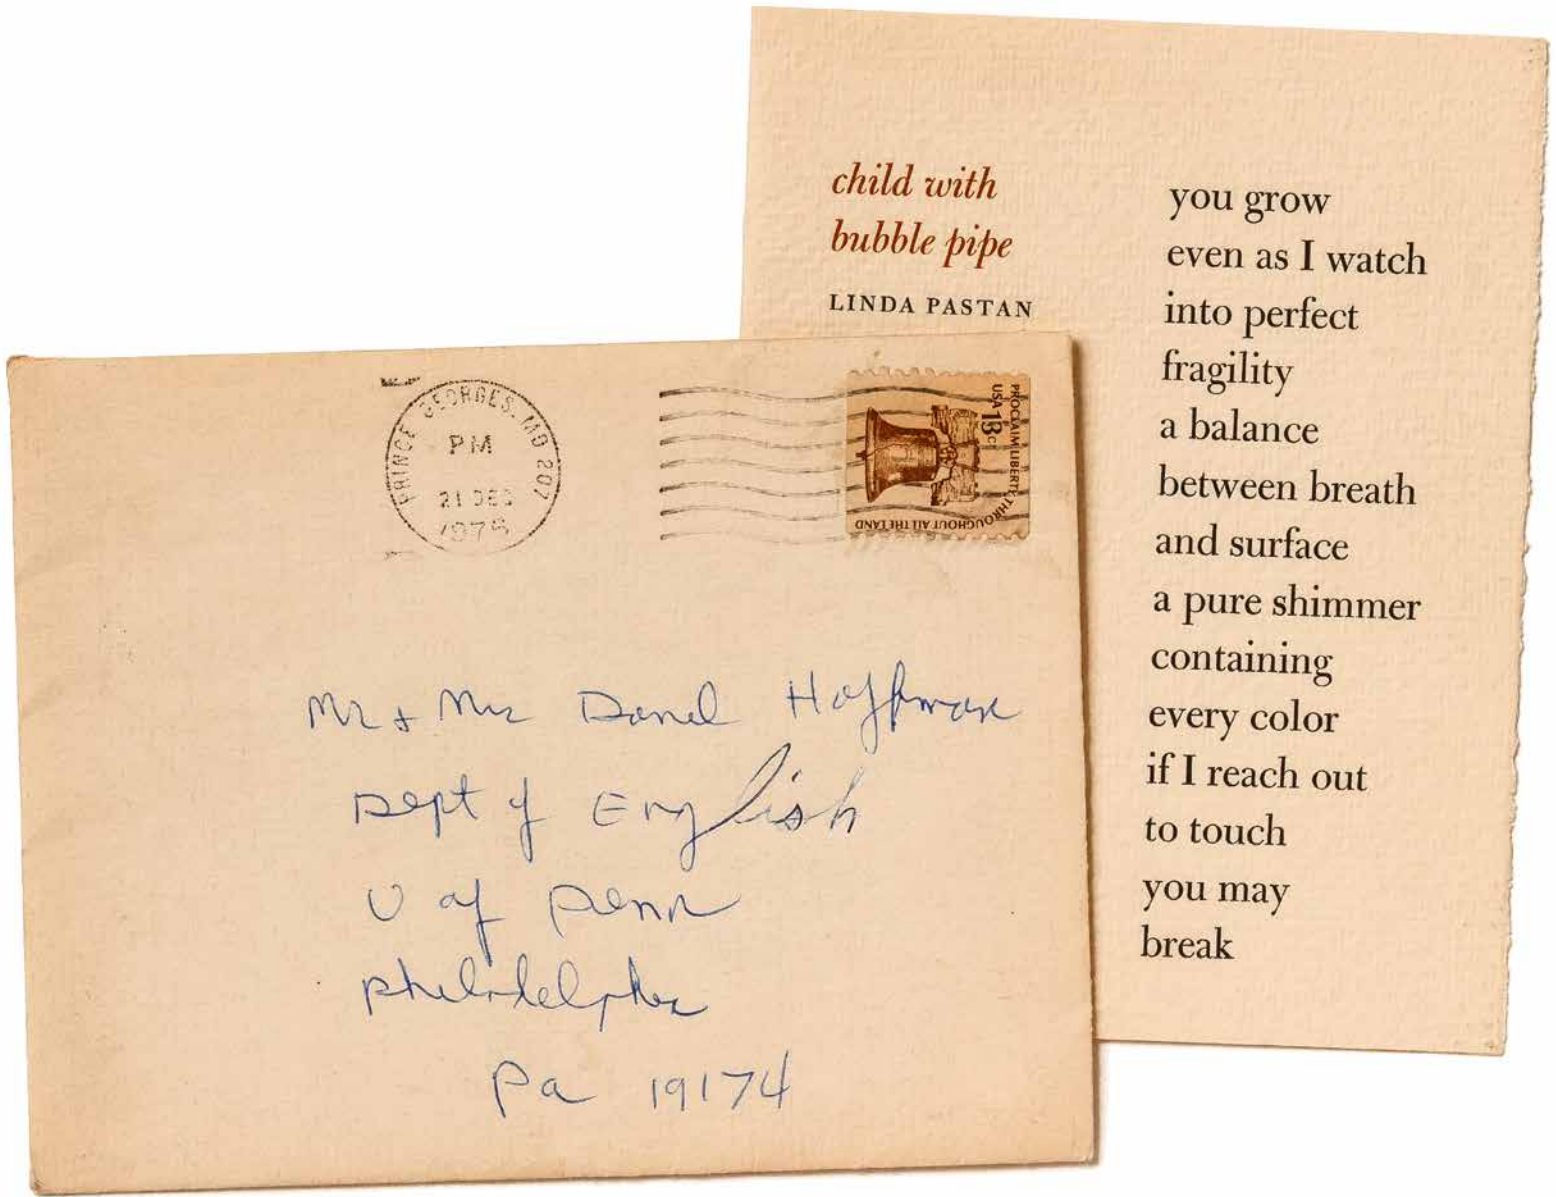 child with
bubble pipe
LINDA PASTAN
you grow
even as I watch
into perfect
fragility
a balance
between breath
and surface
a pure shimmer
containing
every color
if I reach out
to touch
you may
break
PRINCE GEORGES, MD 207
PM
21 DEC
PROCLAIM LIBERTY THROUGHOUT ALL THE LAND
USA 13c
Mr + Mrs Daniel Hoffman
Dept of English
U of Penn
Philadelphia
Pa 19174